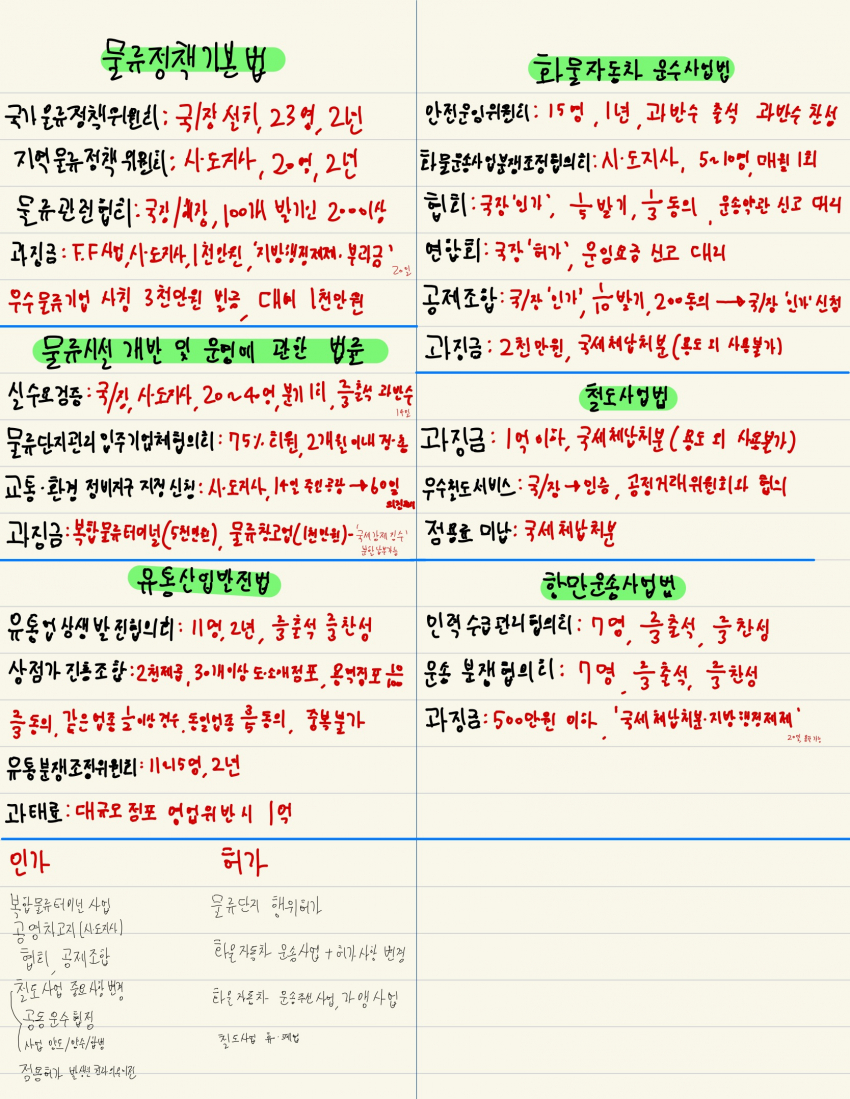 물류정책기본법
국가물류정책위원회: 국/장 설치, 23명, 2년
지역물류정책위원회: 시·도지사, 20명, 2년
물류관련협회: 국장/해장, 100개 발기인 200이상
과징금: F.F사업, 시·도지사, 1천만원, '지방행정제재·부과금'
20일
우수물류기업 사칭 3천만원 벌금, 대여 1천만원
물류시설 개발 및 운영에 관한 법률
실수요검증: 국/장, 시·도지사, 20~40명, 분기 1회, 출석 과반수
14일
물류단지관리 입주기업체협의회: 75% 회원, 2개월이내 정·총
교통·환경 정비지구 지정 신청: 시·도지사, 14일 주민공람 → 60일
과징금: 복합물류터미널(5천만원), 물류창고업(1천만원)-
유통산업발전법
유통업상생발전협의회: 11명, 2년, 2/3 출석 2/3 찬성
상점가 진흥조합: 2천제곱, 30개이상 도·소매점포, 용역점포
2/3 동의, 같은업종 1/2이상 건수, 동일업종 동의, 중복불가
유통분쟁조정위원회: 11~15명, 2년
과태료: 대규모점포 영업위반시 1억
인가
복합물류터미널 사업
공영차고지(시·도지사)
협회, 공제조합
철도사업 중요사항 변경
공동운수협정
사업 양도/양수/합병
점용허가 발생된 권리의무이전
허가
물류단지 행위허가
화물자동차 운송사업 + 허가사항 변경
화물자동차 운송주선사업, 가맹사업
철도사업 휴·폐업
화물자동차 운수사업법
안전운임위원회: 15명, 1년, 과반수 출석 과반수 찬성
화물운송사업분쟁조정협의회: 시·도지사, 5~10명, 매월 1회
협회: 국장'인가', 1/5 발기, 1/3 동의, 운송약관 신고 대리
연합회: 국장 '허가', 운임요금 신고 대리
공제조합: 국/장 '인가', 1/10 발기, 200동의 → 국/장 '인가' 신청
과징금: 2천만원, 국세체납처분 (용도 외 사용불가)
철도사업법
과징금: 1억 이하, 국세체납처분 (용도 외 사용불가)
우수철도서비스: 국/장 → 인증, 공정거래위원회와 협의
점용료 미납: 국세체납처분
항만운송사업법
인력 수급관리협의회: 7명, 2/3 출석, 2/3 찬성
운송 분쟁협의회: 7명, 2/3 출석, 2/3 찬성
과징금: 500만원 이하, '국세체납처분·지방행정제재'